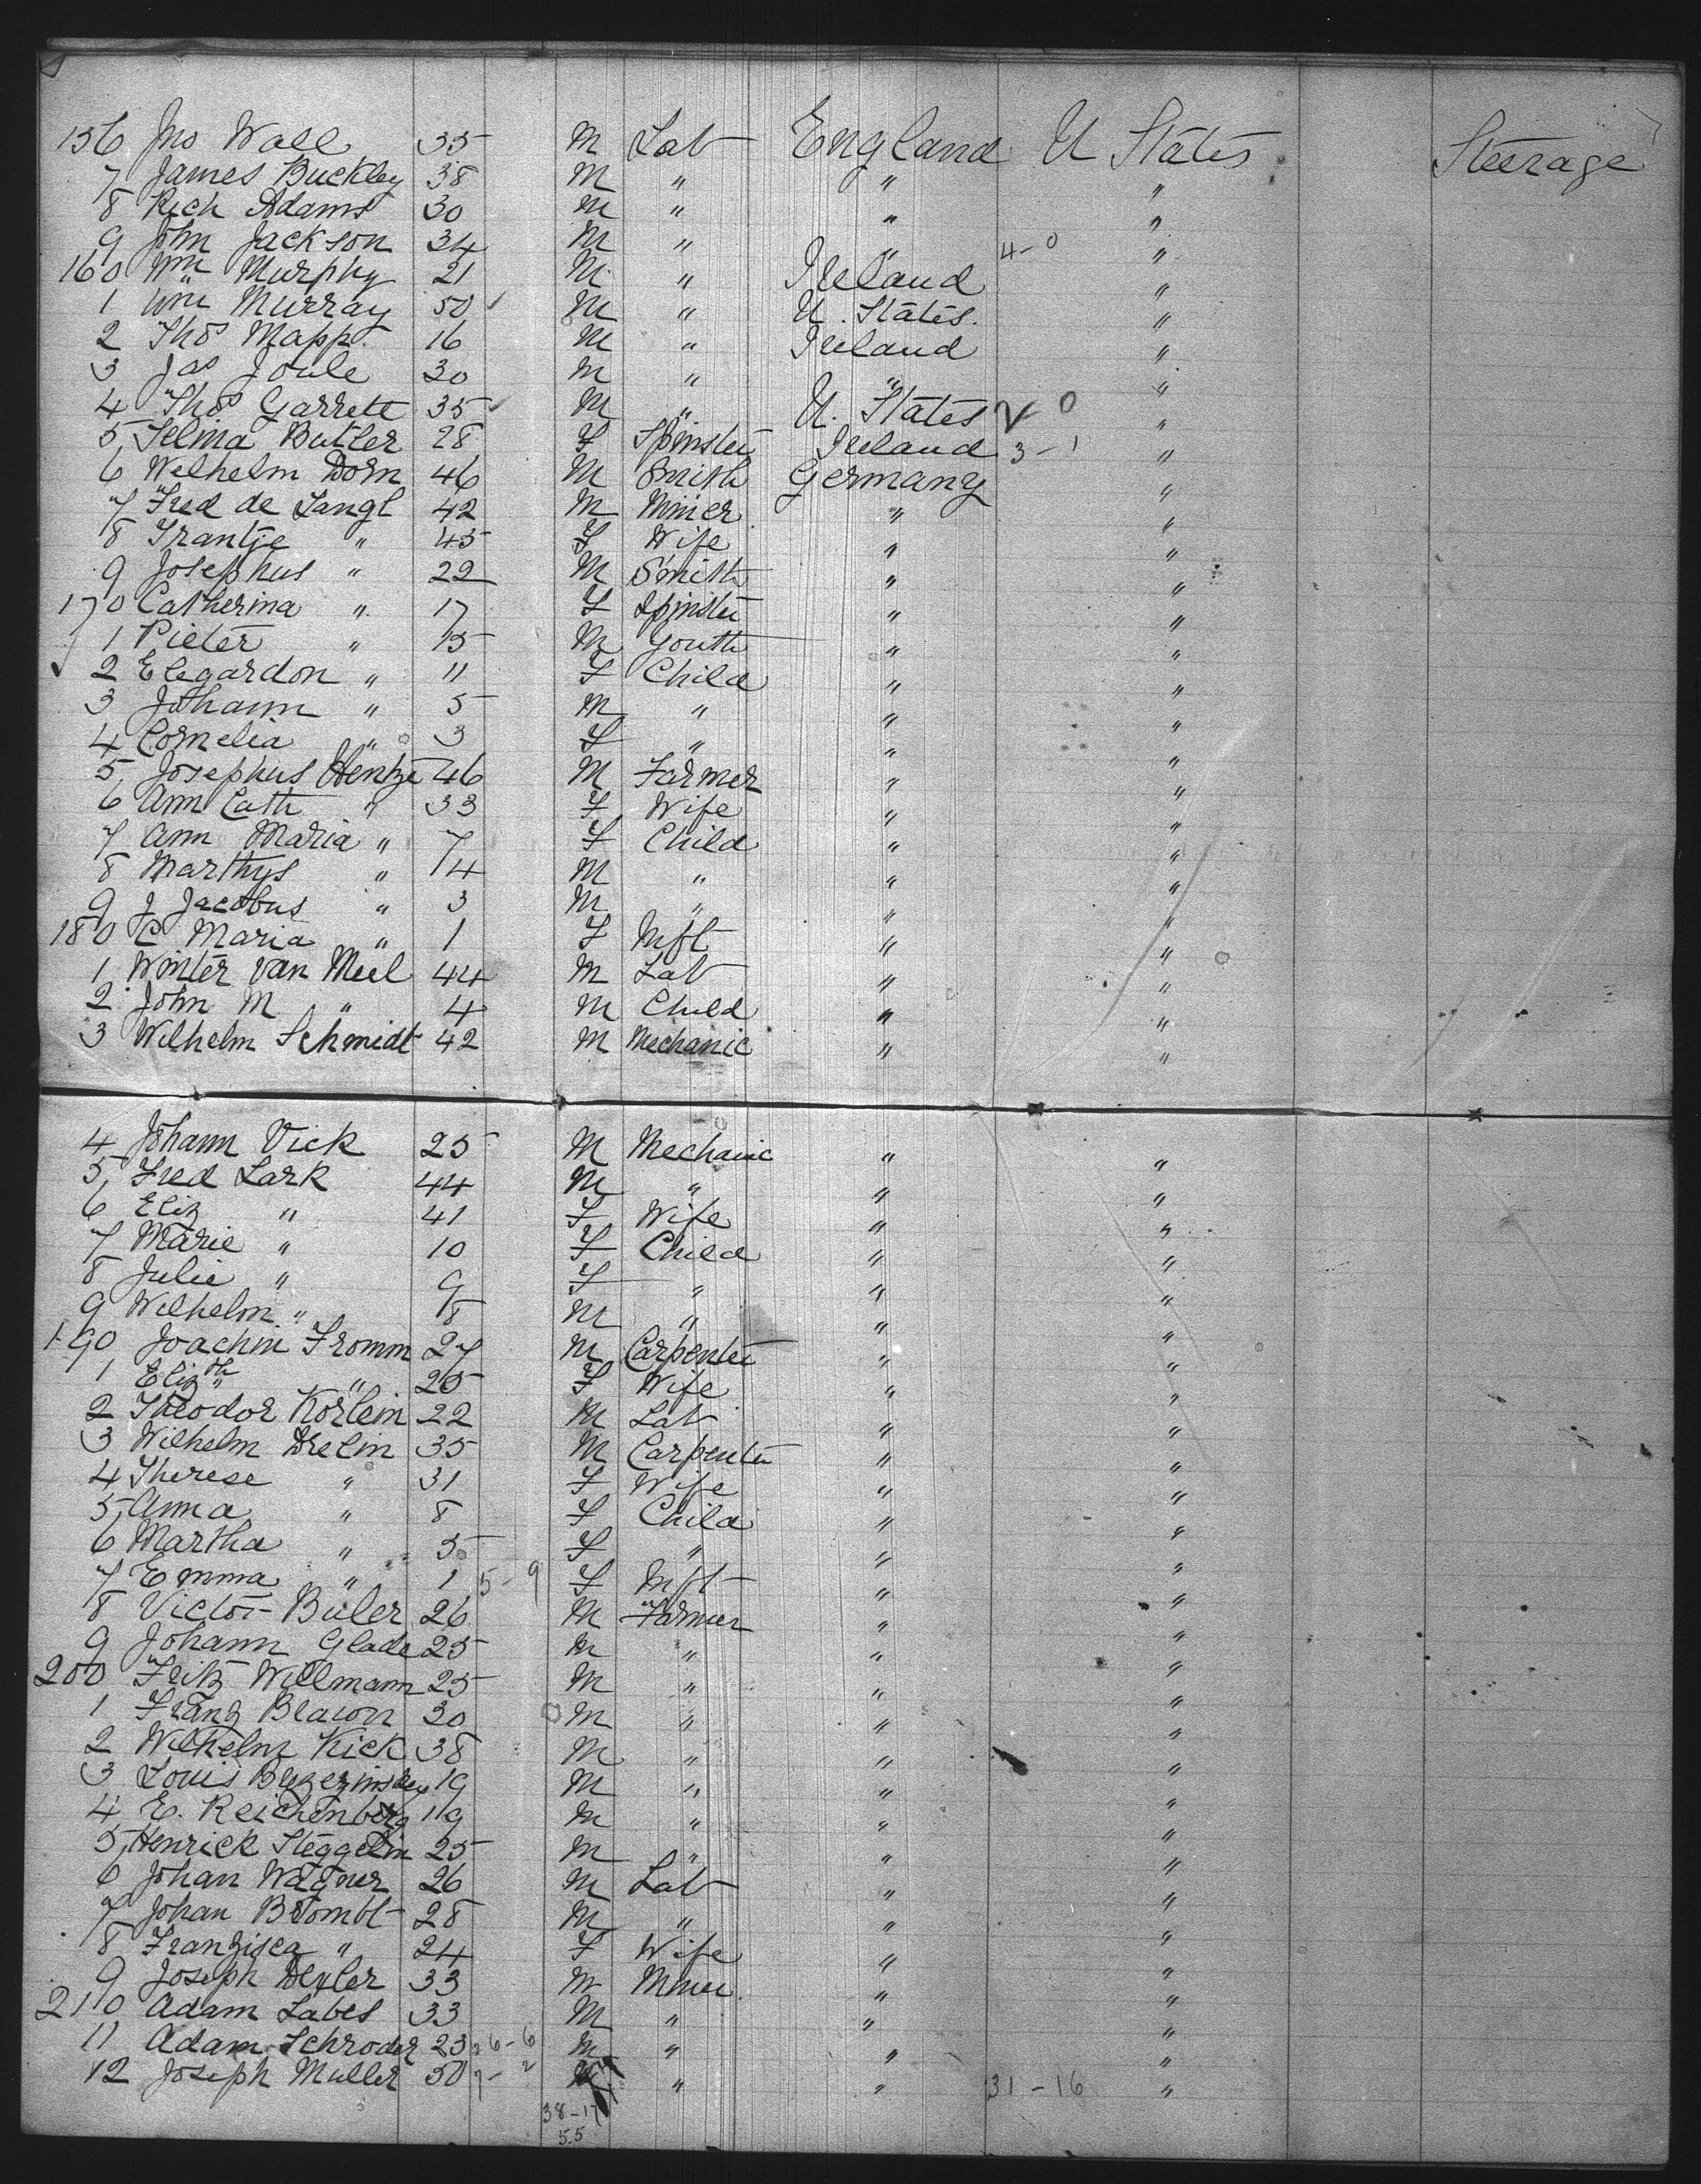 156 Jno Wall 35 M Lab England U States Steerage
7 James Buckley 38 M " " "
8 Rich Adams 30 M " " "
9 John Jackson 34 M " " 4-0 "
160 Wm Murphy 21 M " Ireland "
1 Wm Murray 50 M " U. States. "
2 Thos Mapp 16 M " Ireland "
3 Jas Joule 30 M " " "
4 Thos Garrett 35 M " U. States 2 0 "
5 Selina Butler 28 F Spinster Ireland 3-1 "
6 Welhelm Dorn 46 M Smith Germany "
7 Fred de Langl 42 M Miner " "
8 Frantje " 45 F Wife " "
9 Josephus " 22 M Smith " "
170 Catherina " 17 F Spinster " "
1 Pieter " 15 M Youth " "
2 Elegardon " 11 F Child " "
3 Johann " 5 M " " "
4 Cornelia " 3 F " " "
5 Josephus Hentze 46 M Farmer " "
6 Ann Cath " 33 F Wife " "
7 Ann Maria " 7 F Child " "
8 Marthys " 4 M " " "
9 J Jacobus " 3 M " " "
180 C Maria " 1 F Inft " "
1 Winter van Meel 44 M Lab " "
2 John M " 4 M Child " "
3 Wilhelm Schmidt 42 M Mechanic " "
4 Johann Vick 25 M Mechanic " "
5 Fred Lark 44 M " " "
6 Eliz " 41 F Wife " "
7 Marie " 10 F Child " "
8 Julie " 9 F " " "
9 Wilhelm " 8 M " " "
190 Joachim Fromm 27 M Carpenter " "
1 Elizth " 25 F Wife " "
2 Theodor Korlein 22 M Lab " "
3 Wilhelm Drelin 35 M Carpenter " "
4 Therese " 31 F Wife " "
5 Anna " 8 F Child " "
6 Martha " 5 F " " "
7 Emma " 1 5-9 F Inft " "
8 Victor Buler 26 M Farmer " "
9 Johann Glade 25 M " " "
200 Fritz Willmann 25 M " " "
1 Franz Blaion 30 M " " "
2 Wilhelm Kick 38 M " " "
3 Louis 19 M " " "
4 E. Reichenberg 19 M " " "
5 Henrick Steggelin 25 M " " "
6 Johan Wagner 26 M Lab " "
7 Johan Brombt 28 M " " "
8 Franzisca " 24 F Wife " "
9 Joseph Dexler 33 M Miner. " "
210 Adam Labes 33 M " " "
11 Adam Schroder 23 26-6 M " " "
12 Joseph Muller 50 7-2 M " " 31-16 "
38-17
55